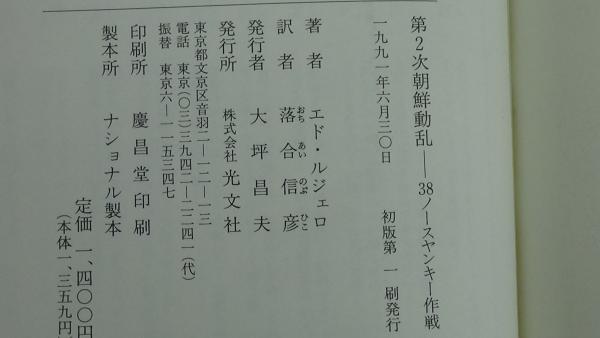 第2次朝鮮動乱――38ノースヤンキー作戦
一九九一年六月三〇日　初版第一刷発行
著者　エド・ルジェロ
訳者　落合信彦
おち　あい　のぶ　ひこ
発行者　大坪昌夫
発行所　株式会社　光文社
東京都文京区音羽二―一二―一三
電話　東京(〇三)三九四二―二二四一(代)
振替　東京六―一一五三四七
印刷所　慶昌堂印刷
製本所　ナショナル製本
定価　一、四〇〇円
(本体一、三五九円